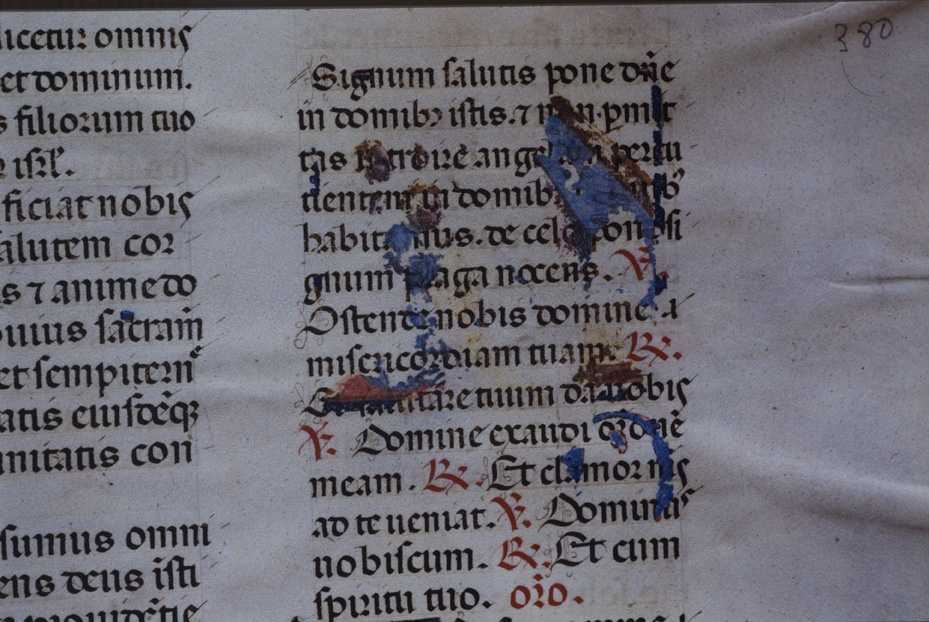 licetur omnis
et dominum.
s filiorum tuo
isrl̃.
ficiat nobis
alutem cor
s ⁊ anime do
uius sacram̃
et sempitern̄
atis eiusdēqꝫ
unitatis con
sumus omni
ens deus isti
380
Signum salutis pone dñe
in domibꝫ istis. ⁊ non pmit
tas introire angelum percu
tientem in domibꝫ
habit de celo
gnum plaga nocens. ℣.
Ostende nobis domine
misericordiam tuam. ℟.
Et salutare tuum da nobis
℣. Domine exaudi orōnē
meam. ℟. Et clamor ms̄
ad te ueniat. ℣. Dominus
nobiscum. ℟. Et cum
spiritu tuo. oro̅.